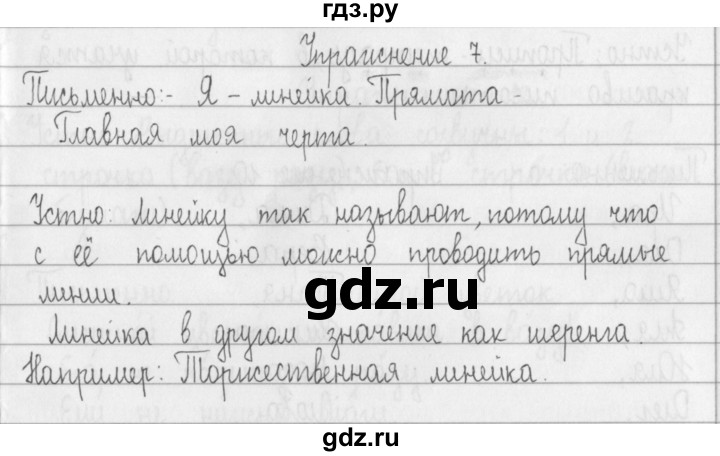 гдз.ру
Упражнение 7.
Письменно:- Я - линейка. Прямота -
Главная моя черта.
Устно: Линейку так называют, потому что
с её помощью можно проводить прямые
линии.
gdz.ru
Линейка в другом значение как шеренга.
Например: Торжественная линейка.
gdz.ru